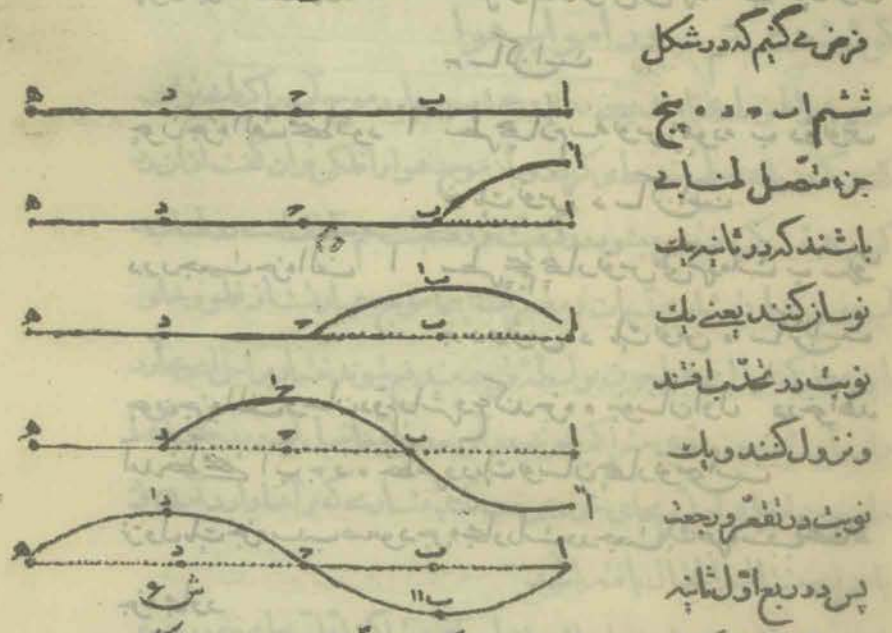 فرض می‌کنیم که در شکل
ششم ا ب ح د ه پنج
جزء متّصل لمنابی
باشند که در ثانیه یک
نوسان کنند یعنی یک
نوبت در تحدّب افتند
و نزول کنند و یک
نوبت در تقعّر و رجعت
پس در ربع اوّل ثانیه
ه د ح ب ا
ه د ح ب ا اّ
ه د ح ب ا ب۱
ه د ح ب ا ح۱ اّ
ه د ح ب ا د۱ ب۱۱
ش ۶